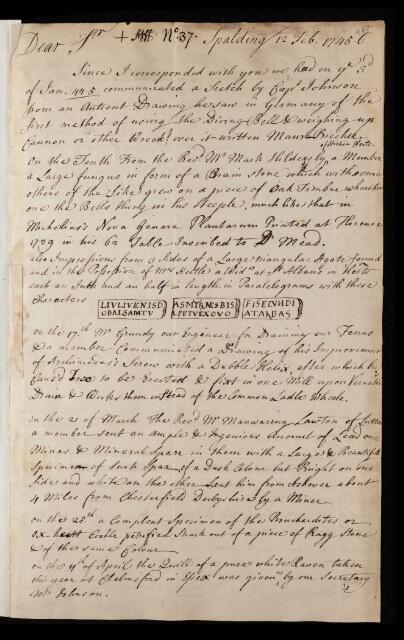 Dear Sr + MSS No: 37. Spalding 12 Feb. 1745/6
Since I corresponded with you we had on ye 3d
of Jan. 44.5 communicated a Scetch by Capt Johnson
from an Antient Drawing he saw in Germany of the
first method of using the Diving Bell & weighing up
Cannon or other Wreck, over it written
On the Tenth From the Revd Mr Mark a Member
a Large fungus in form of a Brain Stone which with some
others of the Like grew on a piece of Oak Timber whereon
one the Bells hung in his Steeple, much like that in
Michelius's Nova Genera Plantarum Printed at Florence
1729 in his 62 Table Inscribed to Dr Mead.
also Impressions from 3 Sides of a Large triangular Agate found
and in the Possession of Mrs a Widw at St Albans in Herts
each an Inch and an half in length in Paralelograms with these
Characters
LIVLIVENISD
OBALSAMTV
ASMTENSBIS
APETVEXOVO
FISEVHDI
ATALBAS
on the 17th Mr Grundy our Engineer for Draining our Fenns
& a member Communicated a Drawing of his Improvement
of Archimedes's Screw with a Dubble Helix, after which he
Caus'd Two to be Erected & fixt in one Mill upon
Drain & Works them instead of the Common Ladle Wheele.
on the 21 of March The Revd Mr Manwaring of
a member sent an Ample & Ingenious Account of Lead ore
Mines & Mineral Spar in them with a Large & Beautifull
Specimen of Such Spar of a Dusk Colour but Bright on one
Side and white on the other Sent him from Ashover about
4 Miles from Chesterfield Derbyshire by a Miner
on the 28th a Compleat Specimen of the or
Ox Cockle petrified Struck out of a piece of Ragg Stone
& of the same Colour
on the 4th of April the Quill of a pure white Raven taken
this year at Chelmsford in Essex was given us by our Secretary
Mr Johnson.